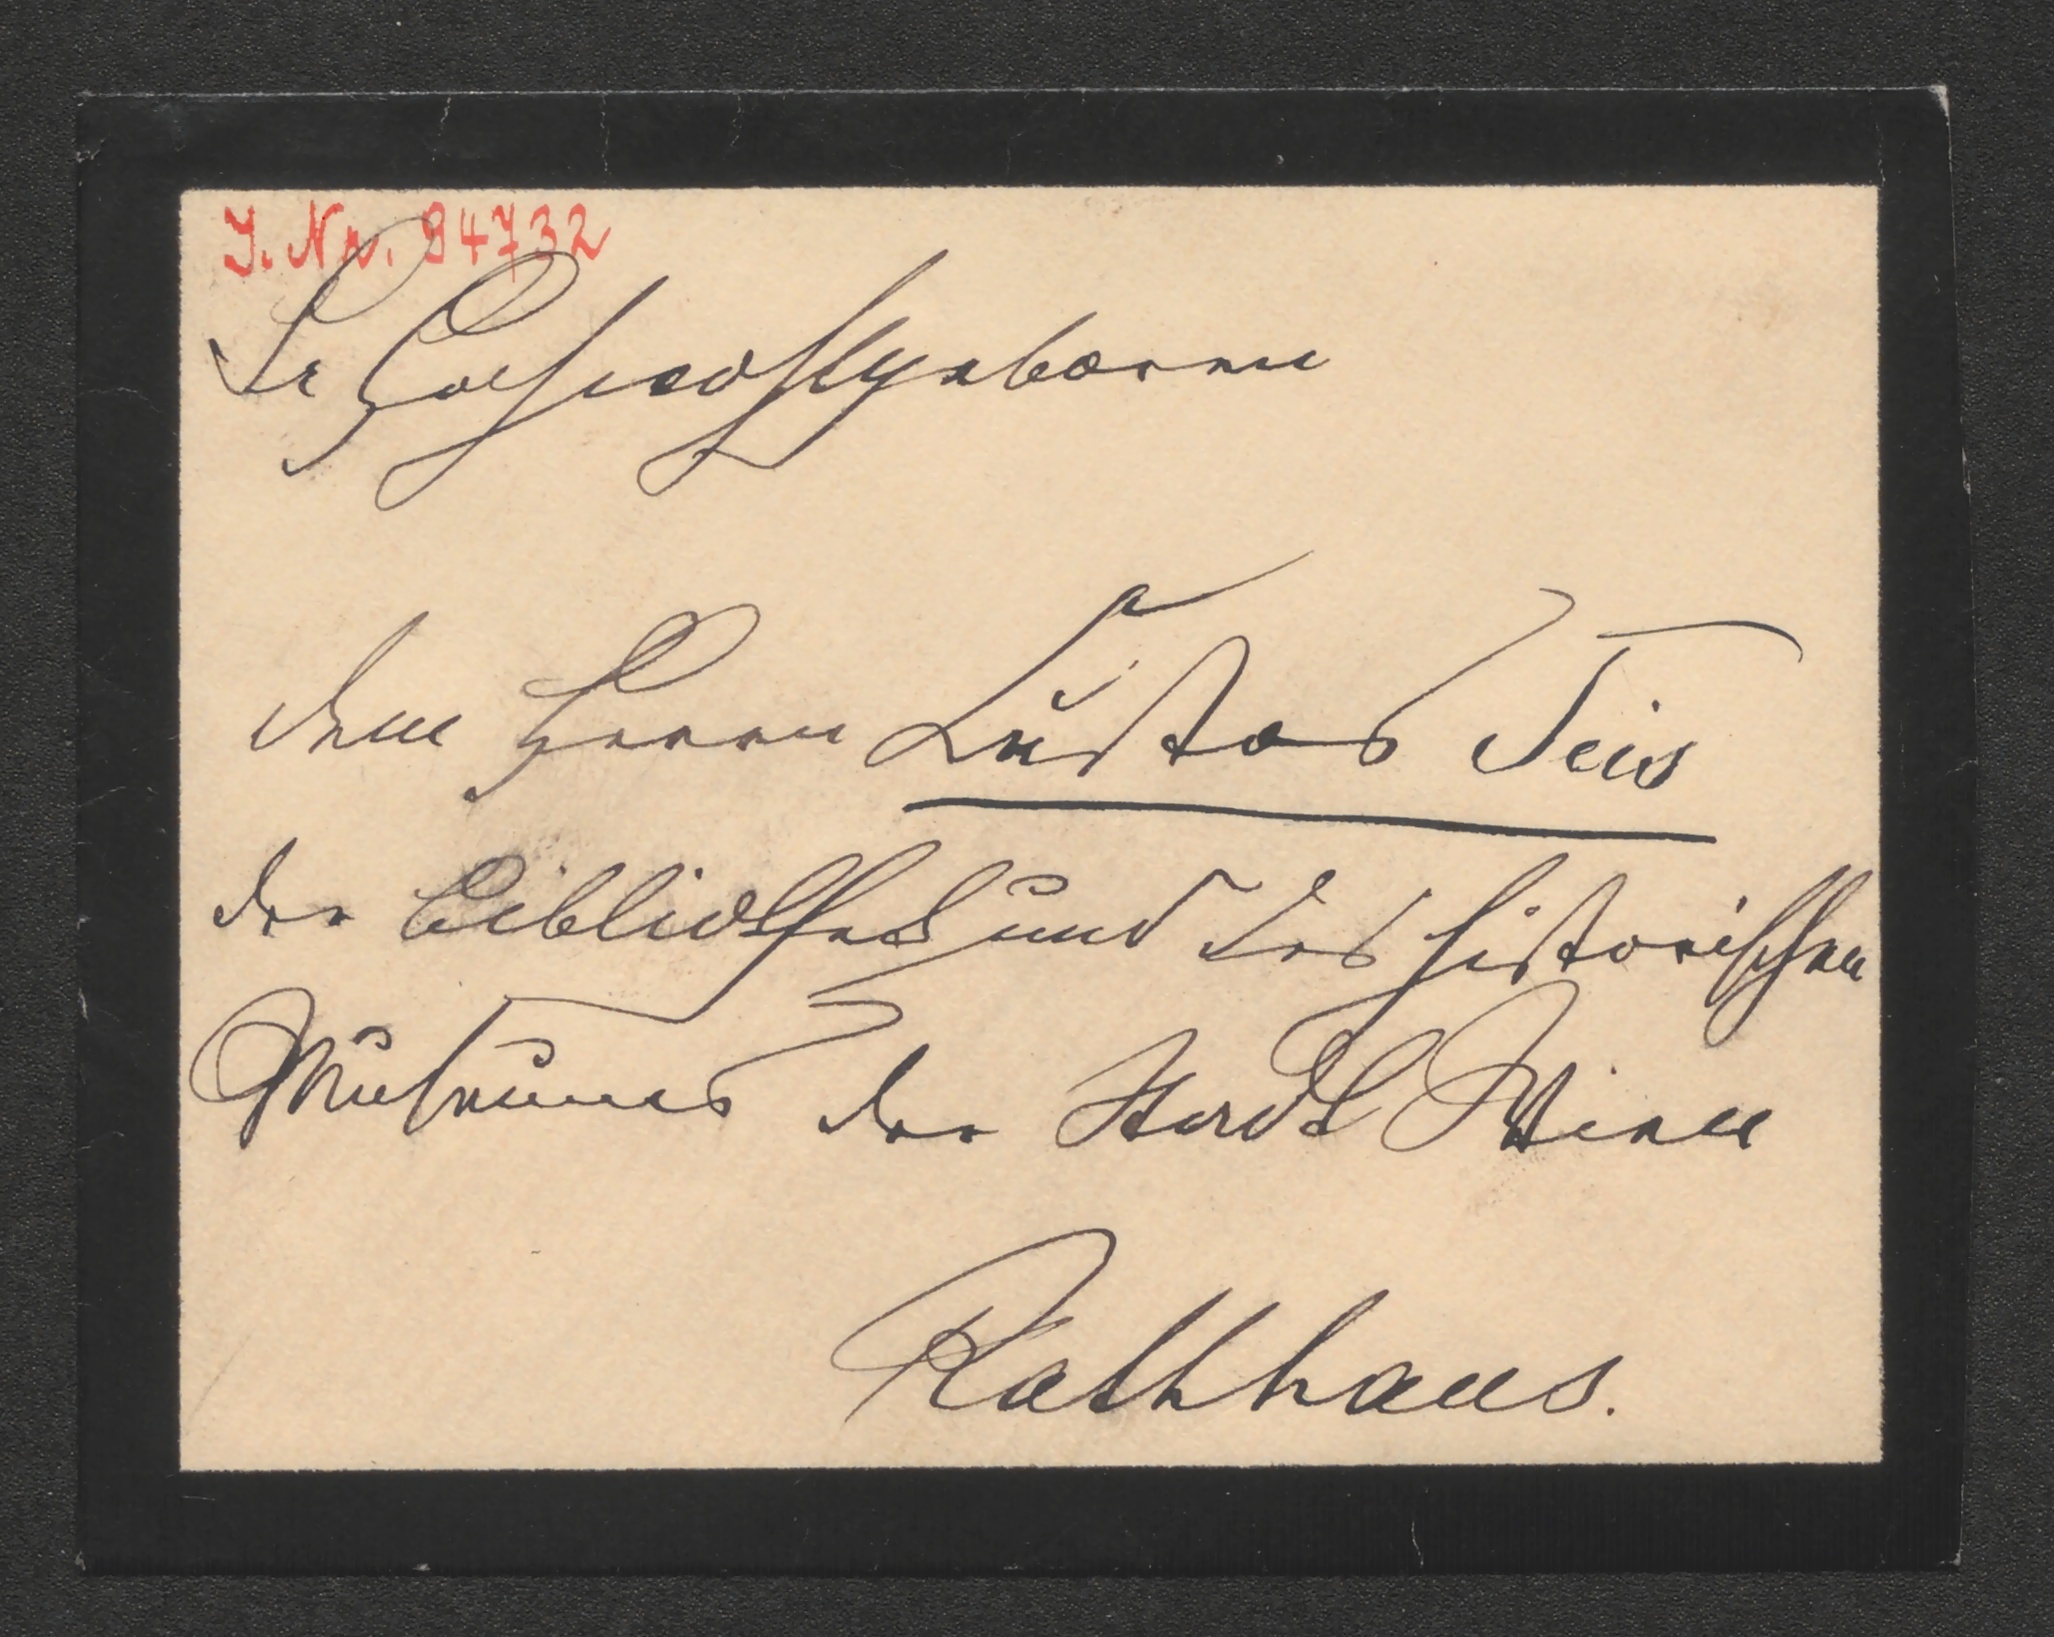 J. Nr. 94732
Sr Hochwohlgeboren
dem Herrn Custos Seis
der Bibliothek und des historischen
Museums der Stadt Wien
Rathhaus.